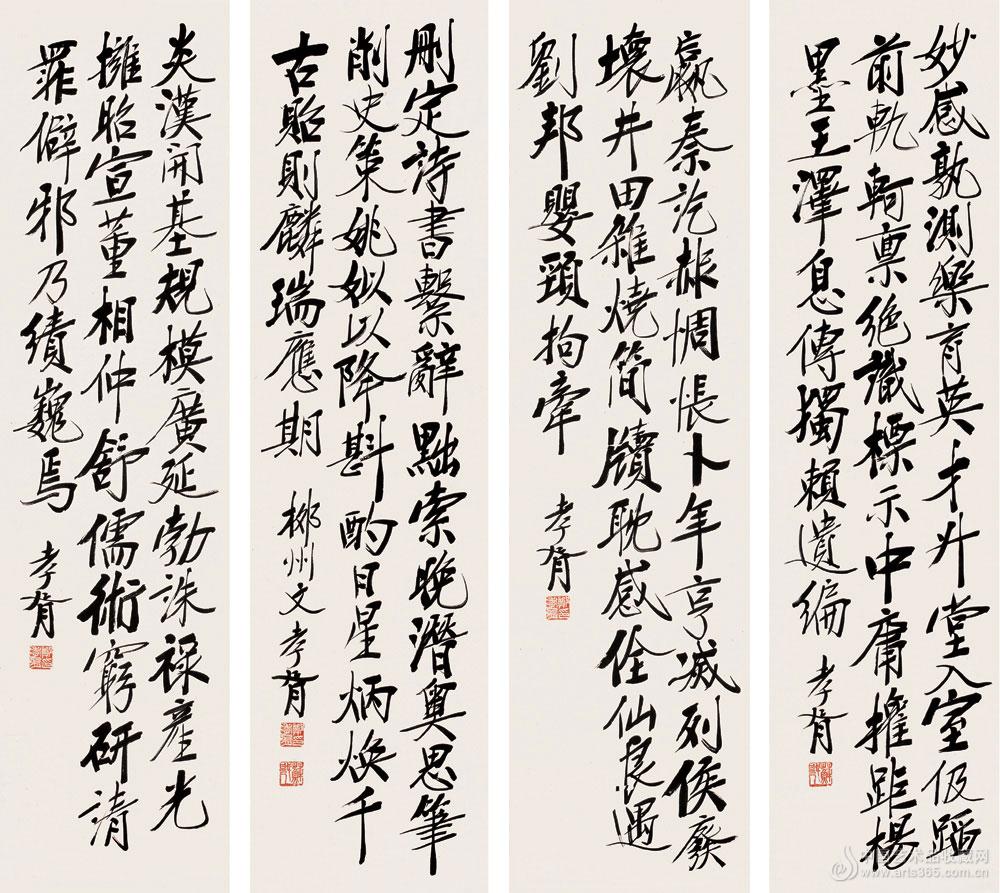 妙感孰測樂育英才升堂入室伋蹈
前軌軻稟絕識標示中庸摧距楊
墨王澤息傳獨賴遺編 孝胥
嬴秦訖赧惆悵卜年亨滅列侯廢
壞井田雜燒簡牘耽感佺仙良遇
劉邦嬰頸拘牽 孝胥
刪定詩書繫辭黜索晚潛奧思筆
削史策姚姒以降斟酌日星炳煥千
古貽則麟瑞應期 柳州文 孝胥
炎漢開基規模廣延勃誅祿產光
擁昭宣董相仲舒儒術窮研請
罪僻邪乃績巍焉 孝胥
中国艺术品收藏网
www.arts365.com.cn